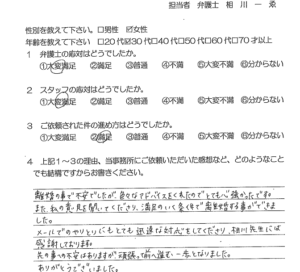 担当者 弁護士 相川 一ゑ
性別を教えて下さい。□男性 ☑女性
年齢を教えて下さい □20代□30代□40代□50代□60代□70才以上
1 弁護士の応対はどうでしたか。
①大変満足 ②満足 ③普通 ④不満 ⑤大変不満 ⑥分からない
2 スタッフの応対はどうでしたか。
①大変満足 ②満足 ③普通 ④不満 ⑤大変不満 ⑥分からない
3 ご依頼された件の進め方はどうでしたか。
①大変満足 ②満足 ③普通 ④不満 ⑤大変不満 ⑥分からない
4 上記1～3の理由、当事務所にご依頼いただいた感想など、どのようなこと
でも結構ですからお書きください。
離婚の事で不安でしたが、色々なアドバイスをくれたのでとても心強かったです。
また、私の意見を聞いてくださり、満足のいく条件で離婚する事ができま
した。
メールでのやりとりにもとても迅速な対応をしてくださり、相川先生には
感謝しております。
先の事の不安はありますが頑張って前へ進む一歩となりました。
ありがとうございました。